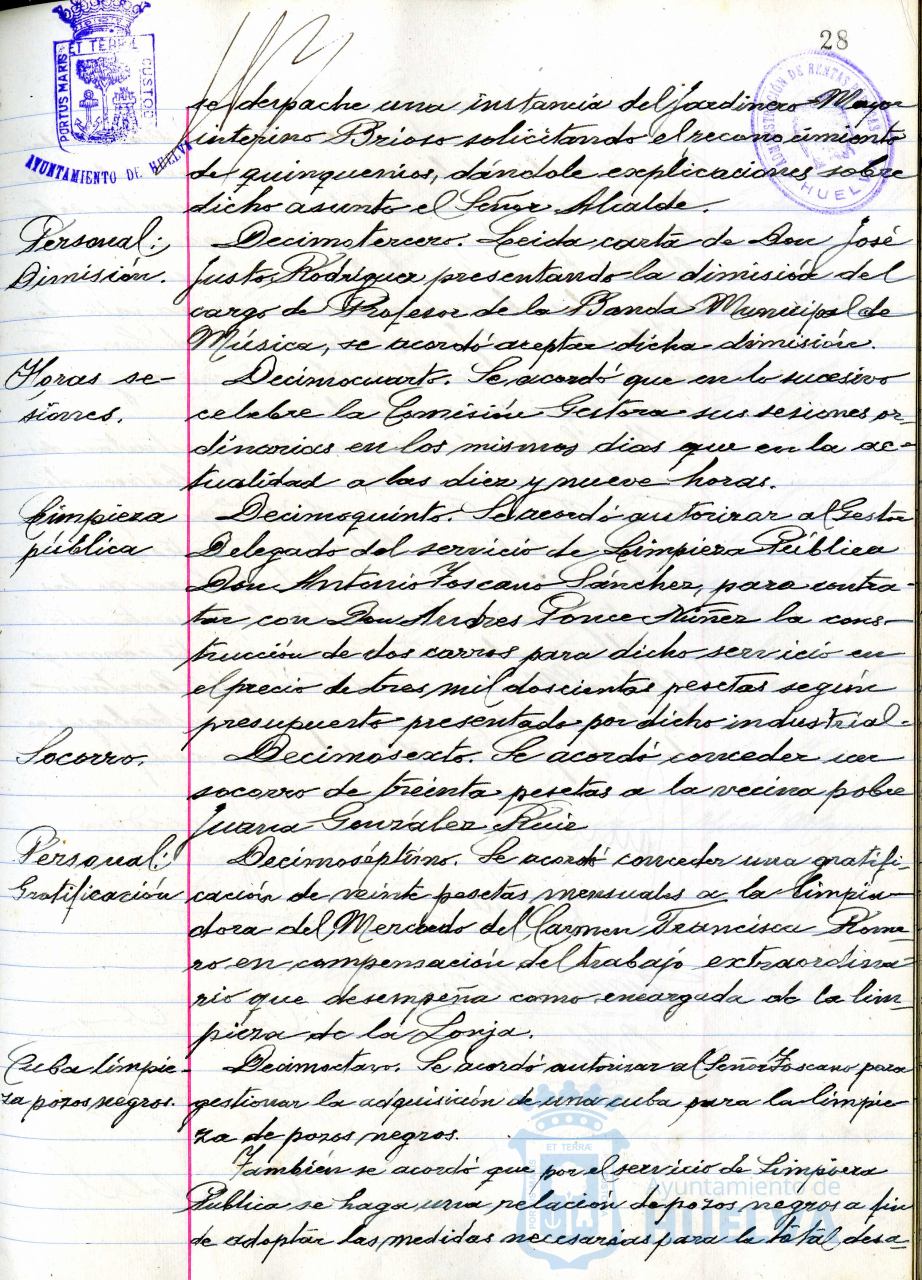 28
PORTUS MARIS ET TERRÆ CUSTOD
AYUNTAMIENTO DE HUELVA
ADMINISTRACIÓN DE RENTAS
HUELVA
se despache una instancia del Jardinero Mayor
interino Brioso solicitando el reconocimiento
de quinquenios, dándole explicaciones sobre
dicho asunto el Señor Alcalde.
Personal:
Dimisión.
Decimotercero. Leida carta de Don José
Justo Rodriguez presentando la dimisión del
cargo de Profesor de la Banda Municipal de
Música, se acordó aceptar dicha dimisión.
Horas se-
siones.
Decimocuarto. Se acordó que en lo sucesivo
celebre la Comisión Gestora sus sesiones or-
dinarias en los mismos dias que en la ac-
tualidad a las diez y nueve horas.
Limpieza
pública
Decimoquinto. Se acordó autorizar al Gestor
Delegado del servicio de Limpieza Pública
Don Antonio Toscano Sánchez, para contra-
tar con Don Andres Ponce Núñez la cons-
trucción de dos carros para dicho servicio en
el precio de tres mil doscientas pesetas según
presupuesto presentado por dicho industrial.
Socorro.
Decimosexto. Se acordó conceder un
socorro de treinta pesetas a la vecina pobre
Juana González Ruiz
Personal:
Gratificación
Decimoséptimo. Se acordó conceder una gratifi-
cación de veinte pesetas mensuales a la limpia-
dora del Mercado del Carmen Francisca Rome-
ro en compensación del trabajo extraordina-
rio que desempeña como encargada de la lim-
pieza de la Lonja.
Cuba limpie-
za pozos negros.
Decimoctavo. Se acordó autorizar al Señor Toscano para
gestionar la adquisición de una cuba para la limpie-
za de pozos negros.
También se acordó que por el servicio de Limpieza
Pública se haga una relación de pozos negros a fin
de adoptar las medidas necesarias para la total desa-
ET TERRÆ
Ayuntamiento de
HUELVA